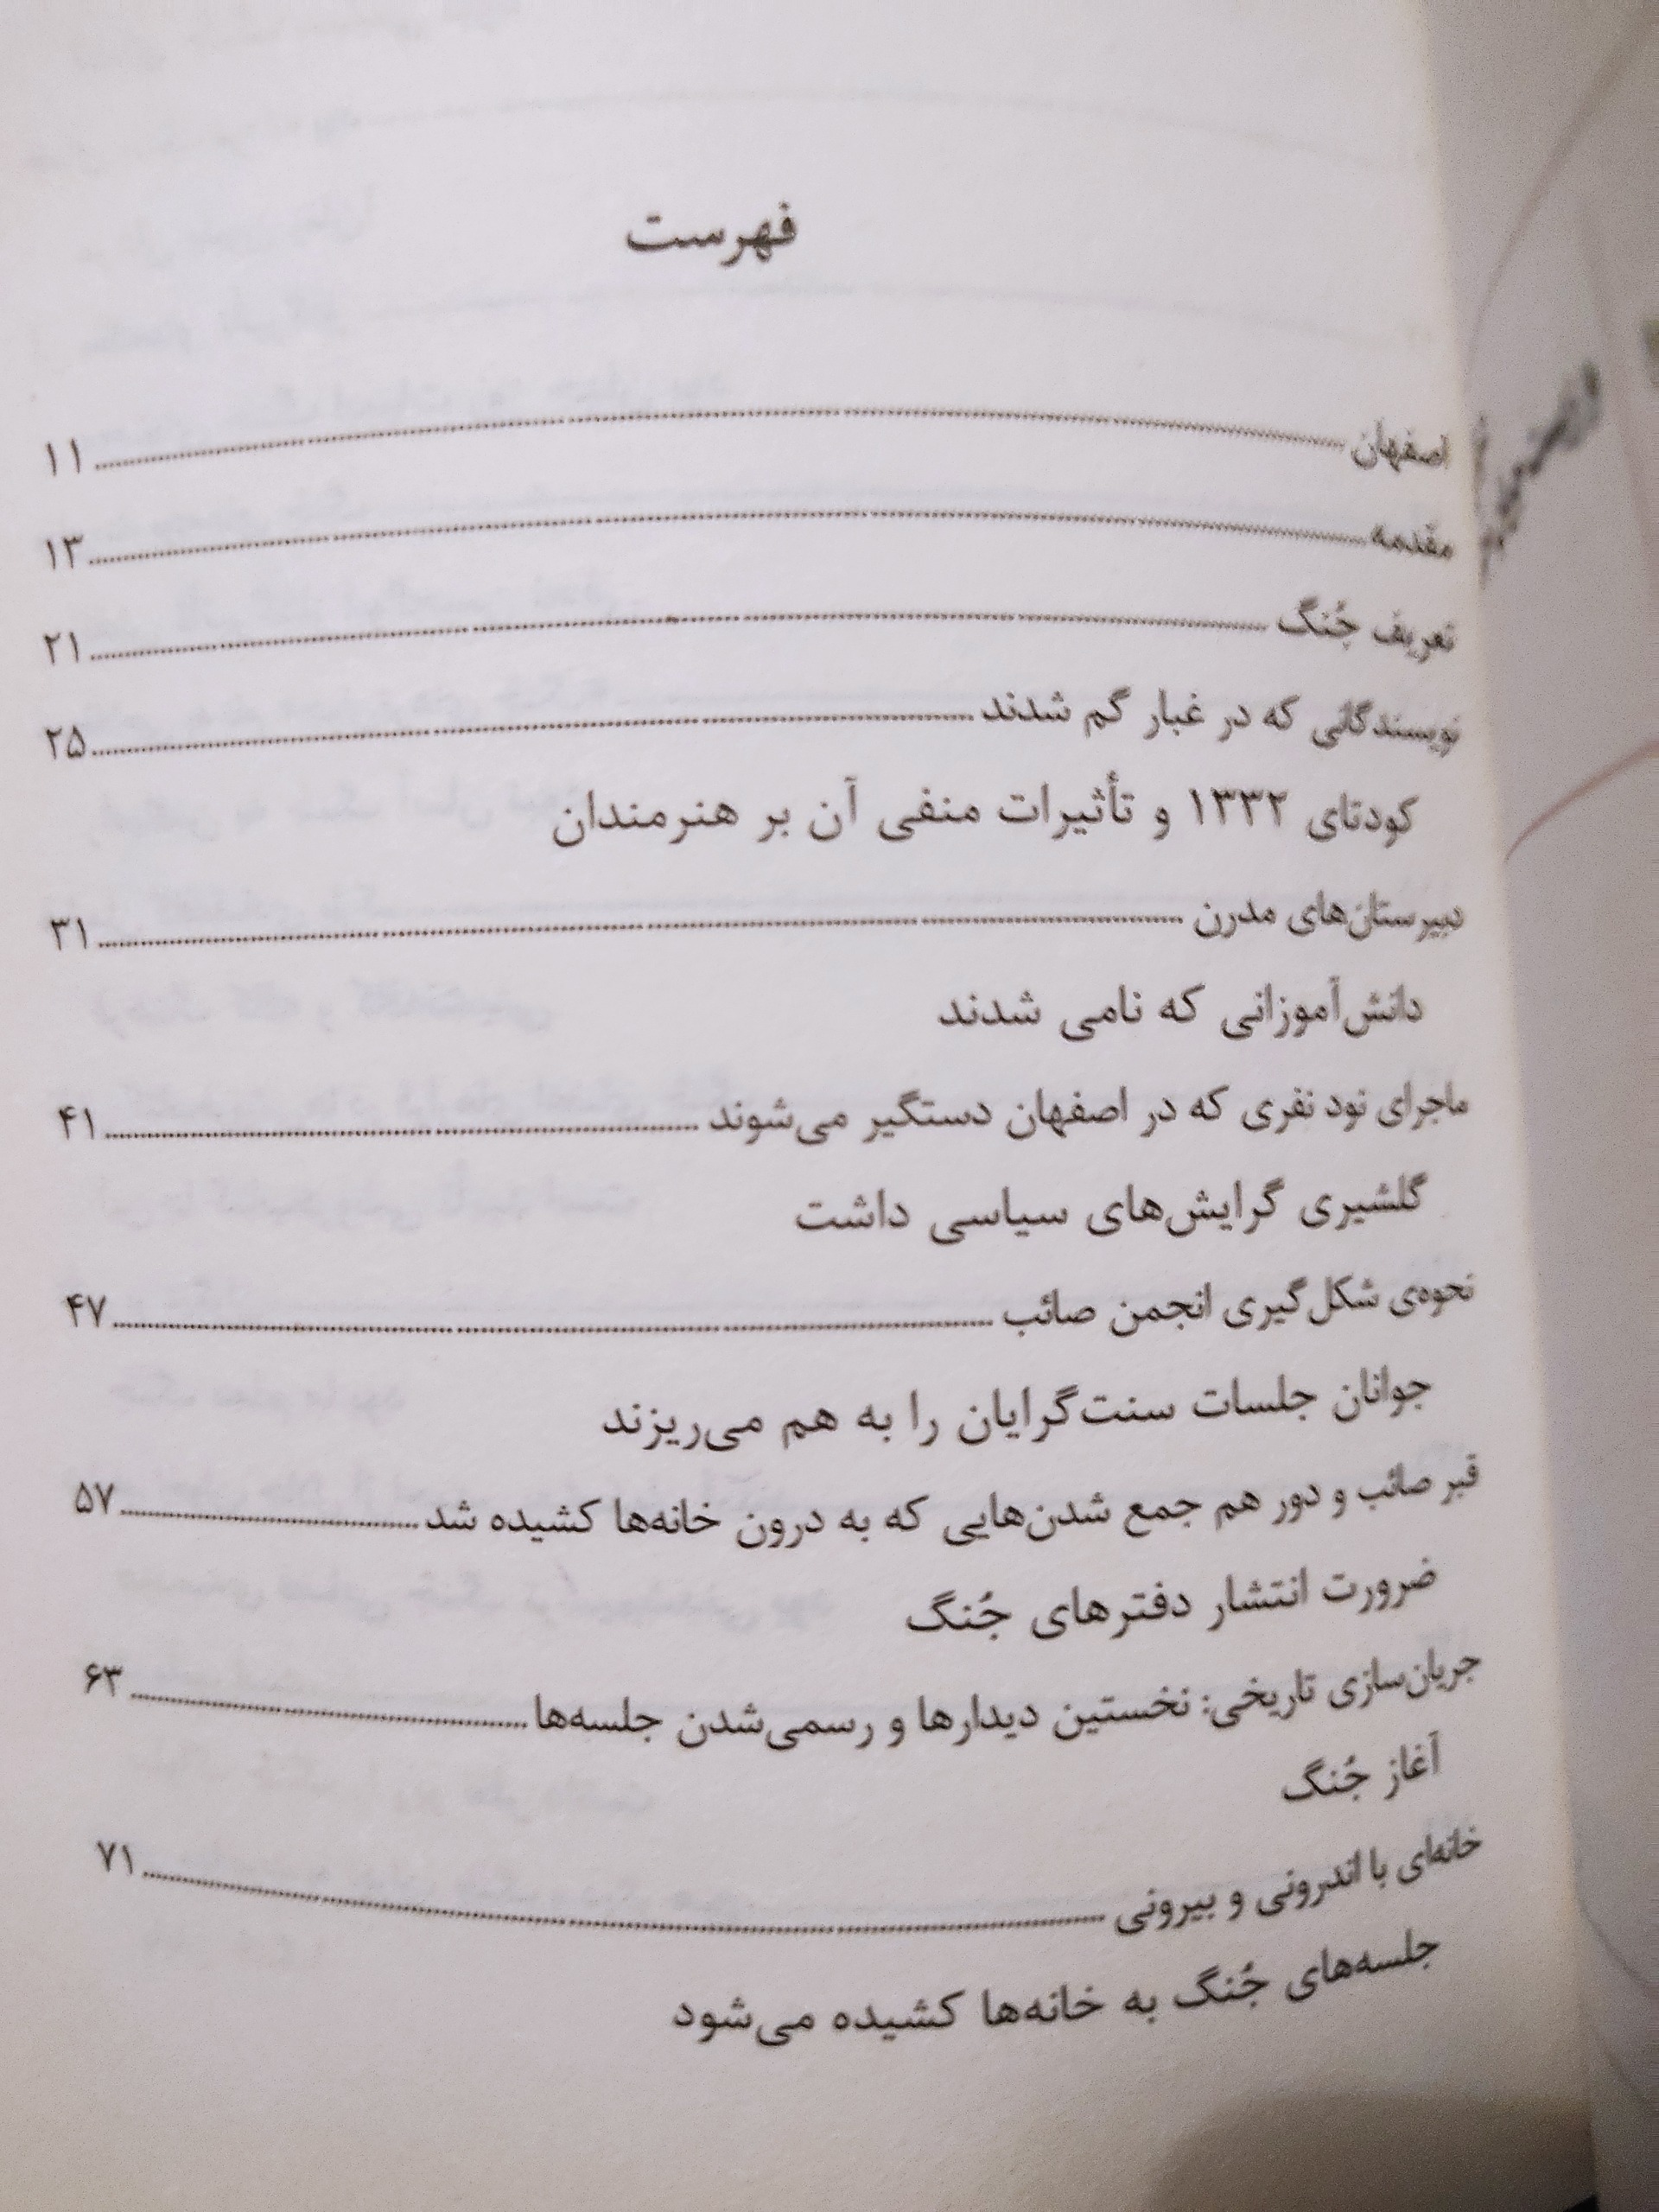 فهرست
اصفهان ........ ۱۱
مقدمه ........ ۱۳
تعریف جُنگ ........ ۲۱
نویسندگانی که در غبار گم شدند ........ ۲۵
کودتای ۱۳۳۲ و تأثیرات منفی آن بر هنرمندان
دبیرستان‌های مدرن ........ ۳۱
دانش‌آموزانی که نامی شدند
ماجرای نود نفری که در اصفهان دستگیر می‌شوند ........ ۴۱
گلشیری گرایش‌های سیاسی داشت
نحوه‌ی شکل‌گیری انجمن صائب ........ ۴۷
جوانان جلسات سنت‌گرایان را به هم می‌ریزند
قبر صائب و دور هم جمع شدن‌هایی که به درون خانه‌ها کشیده شد ........ ۵۷
ضرورت انتشار دفترهای جُنگ
جریان‌سازی تاریخی: نخستین دیدارها و رسمی‌شدن جلسه‌ها ........ ۶۳
آغاز جُنگ
خانه‌ای با اندرونی و بیرونی ........ ۷۱
جلسه‌های جُنگ به خانه‌ها کشیده می‌شود